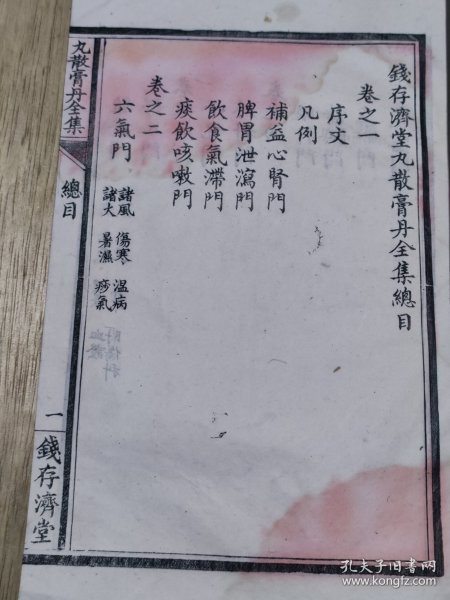 錢存濟堂丸散膏丹全集總目
卷之一
序文
凡例
補益心腎門
脾胃泄瀉門
飲食氣滯門
痰飲咳嗽門
卷之二
六氣門
諸風 傷寒 溫病
諸火 暑濕 痧氣
丸散膏丹全集
總目
一
錢存濟堂
孔夫子旧书网
www.kongfz.com